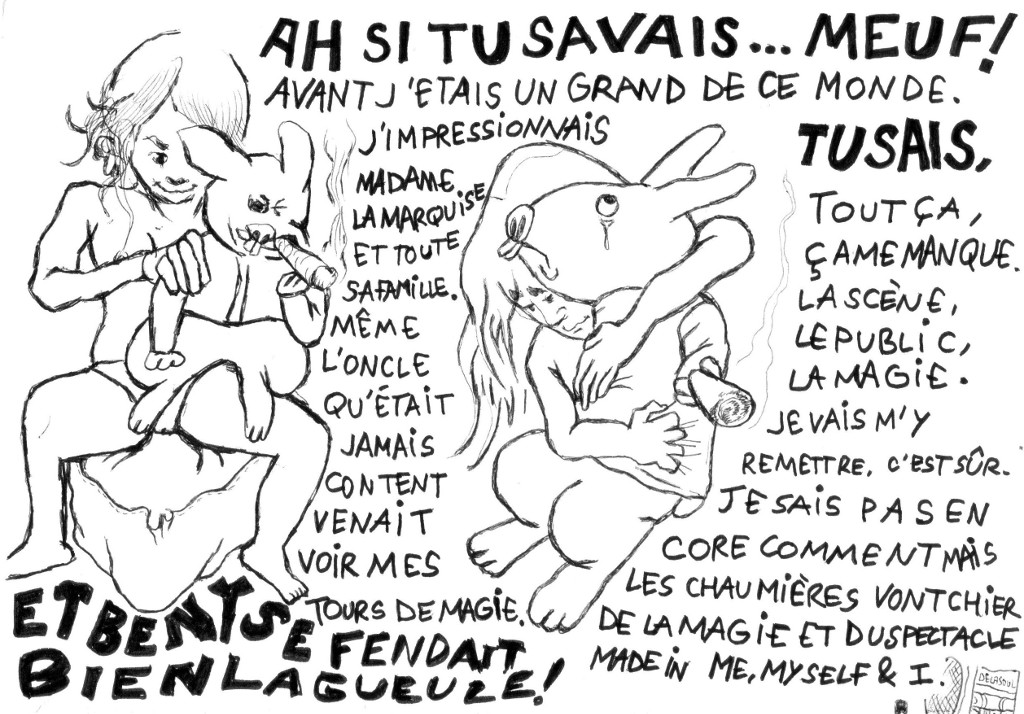 AH SI TU SAVAIS... MEUF!
AVANT J'ETAIS UN GRAND DE CE MONDE.
J'IMPRESSIONNAIS
MADAME
LA MARQUISE
ET TOUTE
SA FAMILLE.
MÊME
L'ONCLE
QU'ÉTAIT
JAMAIS
CONTENT
VENAIT
VOIR MES
TOURS DE MAGIE.
ET BENTSE FENDAIT
BIEN LA GUEUZE!
TU SAIS,
TOUT ÇA,
ÇA ME MANQUE.
LA SCÈNE,
LE PUBLIC,
LA MAGIE.
JE VAIS M'Y
REMETTRE, C'EST SÛR.
JE SAIS PAS EN
CORE COMMENT MAIS
LES CHAUMIÈRES VONT CHIER
DE LA MAGIE ET DU SPECTACLE
MADE IN ME, MYSELF & I.
DE LA SOUL